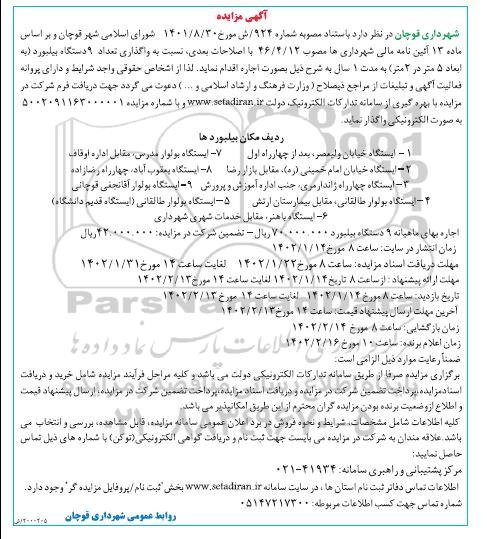 آگهی مزایده
شهرداری قوچان در نظر دارد باستناد مصوبه شماره ۹۲۴/ش مورخ ۱۴۰۱/۸/۳۰ شورای اسلامی شهر قوچان و بر اساس
ماده ۱۳ آئین نامه مالی شهرداری ها مصوب ۴۶/۴/۱۲ با اصلاحات بعدی، نسبت به واگذاری تعداد ۹دستگاه بیلبورد (به
ابعاد ۵ متر در ۲متر) به مدت ۱ سال به شرح ذیل بصورت اجاره اقدام نماید. لذا از اشخاص حقوقی واجد شرایط و دارای پروانه
فعالیت آگهی و تبلیغات از مراجع ذیصلاح ( وزارت فرهنگ و ارشاد اسلامی و ... ) دعوت می گردد جهت دریافت فرم شرکت در
مزایده با بهره گیری از سامانه تدارکات الکترونیک دولت www.setadiran.ir و با شماره مزایده ۵۰۰۲۰۹۱۱۶۳۰۰۰۰۰۱
به صورت الکترونیکی واگذار نماید.
ردیف مکان بیلبورد ها
۱ – ایستگاه خیابان ولیعصر، بعد از چهارراه اول ۷– ایستگاه بولوار مدرس، مقابل اداره اوقاف
۲– ایستگاه خیابان امام خمینی (ره)، مقابل بازار رضا ۸– ایستگاه یعقوب آباد، چهارراه رضازاده
۳– ایستگاه چهارراه ژاندارمری، جنب اداره آموزش و پرورش ۹– ایستگاه بولوار آقانجفی قوچانی
۴– ایستگاه بولوار طالقانی، مقابل بیمارستان ارتش ۵– ایستگاه بولوار طالقانی (ایستگاه قدیم دانشگاه)
۶– ایستگاه باهنر، مقابل خدمات شهری شهرداری
اجاره بهای ماهیانه ۹ دستگاه بیلبورد ۷۰.۰۰۰.۰۰۰ ریال – تضمین شرکت در مزایده: ۴۲.۰۰۰.۰۰۰ریال
زمان انتشار در سایت: ساعت ۸ مورخ۱۴۰۲/۱/۱۴
مهلت دریافت اسناد مزایده: ساعت ۸ مورخ۱۴۰۲/۱/۲۲ لغایت ساعت ۱۴ مورخ۱۴۰۲/۱/۳۱
مهلت ارائه پیشنهاد : ازساعت ۸ تاریخ۱۴۰۲/۱/۱۴ لغایت ساعت ۱۴ مورخ۱۴۰۲/۲/۱۳
تاریخ بازدید: ساعت ۸ مورخ ۱۴۰۲/۱/۱۴ لغایت ساعت ۱۴ مورخ ۱۴۰۲/۲/۱۳
آخرین مهلت ارسال پیشنهاد قیمت: ساعت ۱۴ مورخ۱۴۰۲/۲/۱۳
زمان بازگشایی: ساعت ۸ مورخ ۱۴۰۲/۲/۱۴
زمان اعلام برنده: ساعت ۱۰ مورخ ۱۴۰۲/۲/۱۶
ضمناً رعایت موارد ذیل الزامی است:
برگزاری مزایده صرفا از طریق سامانه تدارکات الکترونیکی دولت می باشد و کلیه مراحل فرآیند مزایده شامل خرید و دریافت
اسنادمزایده،پرداخت تضمین شرکت در مزایده و دریافت اسناد مزایده،پرداخت تضمین شرکت در مزایده، ارسال پیشنهاد قیمت
و اطلاع ازوضعیت برنده بودن مزایده گران محترم از این طریق امکانپذیر می باشد.
کلیه اطلاعات شامل مشخصات، شرایط و نحوه فروش در برد اعلان عمومی سامانه مزایده، قابل مشاهده، بررسی و انتخاب می
باشد.علاقه مندان به شرکت در مزایده می بایست جهت ثبت نام و دریافت گواهی الکترونیکی(توکن) با شماره های ذیل تماس
حاصل نمایند:
مرکز پشتیبانی و راهبری سامانه: ۴۱۹۳۴-۰۲۱
اطلاعات تماس دفاتر ثبت نام استان ها ، در سایت سامانه www.setadiran.ir بخش "ثبت نام /پروفایل مزایده گر" وجود دارد.
شماره تماس جهت کسب اطلاعات مربوطه: ۰۵۱۴۷۲۱۷۳۰۰
روابط عمومی شهرداری قوچان